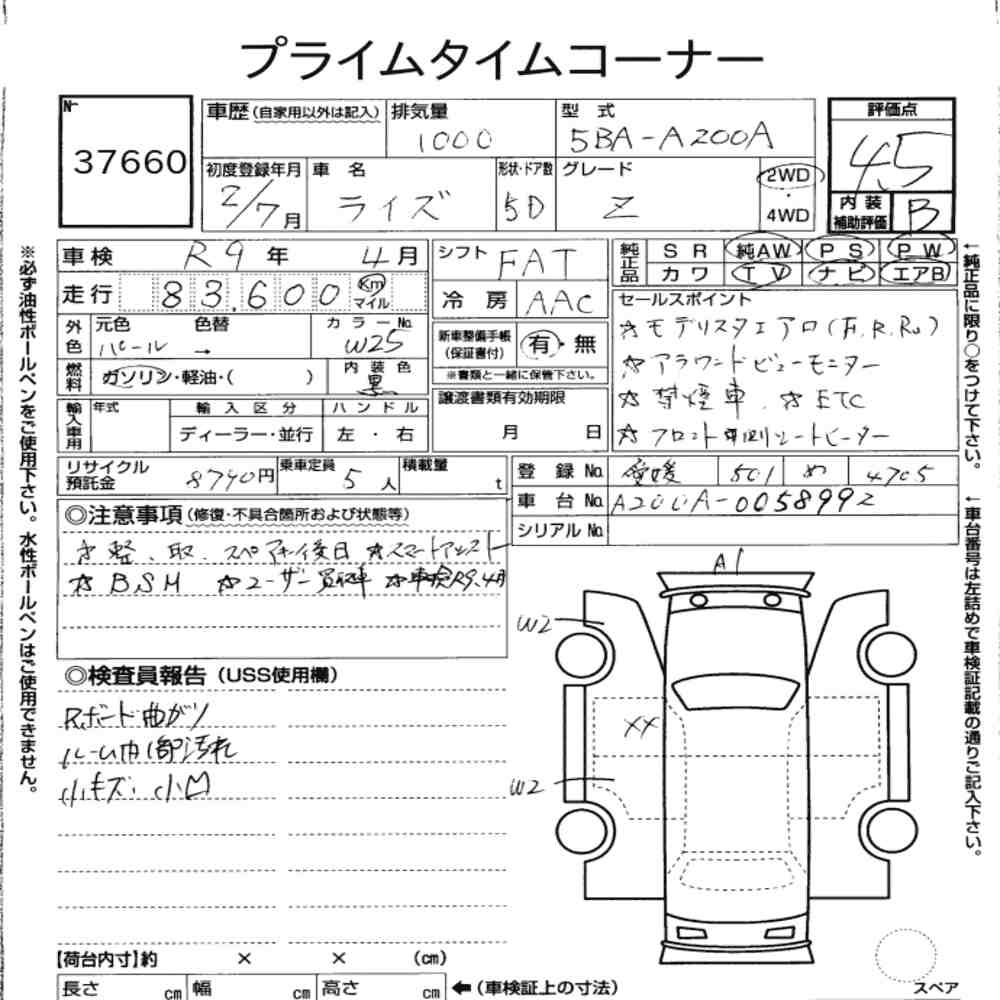 プライムタイムコーナー
№ 37660
車歴(自家用以外は記入) 排気量 1000
型式 5BA-A200A
評価点 4.5
初度登録年月 2/7月
車名 ライズ
形状・ドア数 5D
グレード Z
2WD・4WD
内装補助評価 B
車検 R9年 4月
シフト FAT
純正品 SR 純AW PS PW
カワ TV ナビ エアB
走行 83,600 Km マイル
冷房 AAC
セールスポイント
☆モデリスタエアロ(F.R.Rr)
☆アラウンドビューモニター
☆禁煙車. ☆ETC
☆フロント両側シートヒーター
外色 元色 パール 色替 → カラーNo. W25
新車整備手帳(保証書付) 有・無
※書類と一緒に保管下さい。
燃料 ガソリン・軽油・( ) 内装色 黒
譲渡書類有効期限 月 日
輸入車用 年式 輸入区分 ハンドル
ディーラー・並行 左・右
リサイクル預託金 8740円 乗車定員 5人 積載量 t
登録No. 愛媛 501 め 4705
車台No. A200A-0058992
シリアルNo.
◎注意事項(修復・不具合箇所および状態等)
☆整. 取. スペアキー後日 ☆スマートアシスト
☆BSM ☆ユーザー買取車 ☆車検R9.4月
◎検査員報告(USS使用欄)
Rボード曲がり
ルーム内1部汚れ
小キズ. 小凹
A1
W2
XX
W2
【荷台内寸】約 × × (cm)
長さ cm 幅 cm 高さ cm ←(車検証上の寸法)
スペア
※必ず油性ボールペンをご使用下さい。水性ボールペンはご使用できません。
←純正品に限り○をつけて下さい。
←車台番号は左詰めで車検証記載の通りご記入下さい。